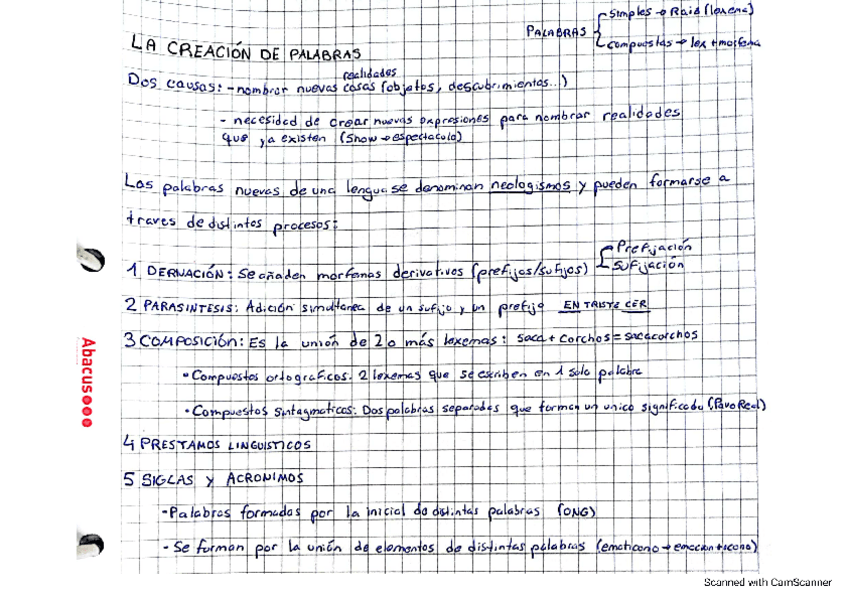 Simples → Raiz (lexema)
PALABRAS
compuestas → lex + morfema
LA CREACIÓN DE PALABRAS
realidades
Dos causas: - nombrar nuevas cosas (objetos, descubrimientos...)
- necesidad de crear nuevas expresiones para nombrar realidades
que ya existen (Show → espectaculo)
Las palabras nuevas de una lengua se denominan neologismos y pueden formarse a
traves de distintos procesos:
Prefijación
1 DERIVACIÓN: Se añaden morfemas derivativos (prefijos/sufijos)
Sufijación
2 PARASINTESIS: Adición simultanea de un sufijo y un prefijo EN TRISTE CER
3 COMPOSICIÓN: Es la unión de 2 o más lexemas: saca + corchos = sacacorchos
• Compuestos ortograficos: 2 lexemas que se escriben en 1 sola palabra
• Compuestos sintagmaticos: Dos palabras separadas que forman un unico significado (Pavo Real)
4 PRESTAMOS LINGUISTICOS
5 SIGLAS Y ACRONIMOS
- Palabras formadas por la inicial de distintas palabras (ONG)
- Se forman por la unión de elementos de distintas palabras (emoticono → emoccion + icono)
Abacus
Scanned with CamScanner